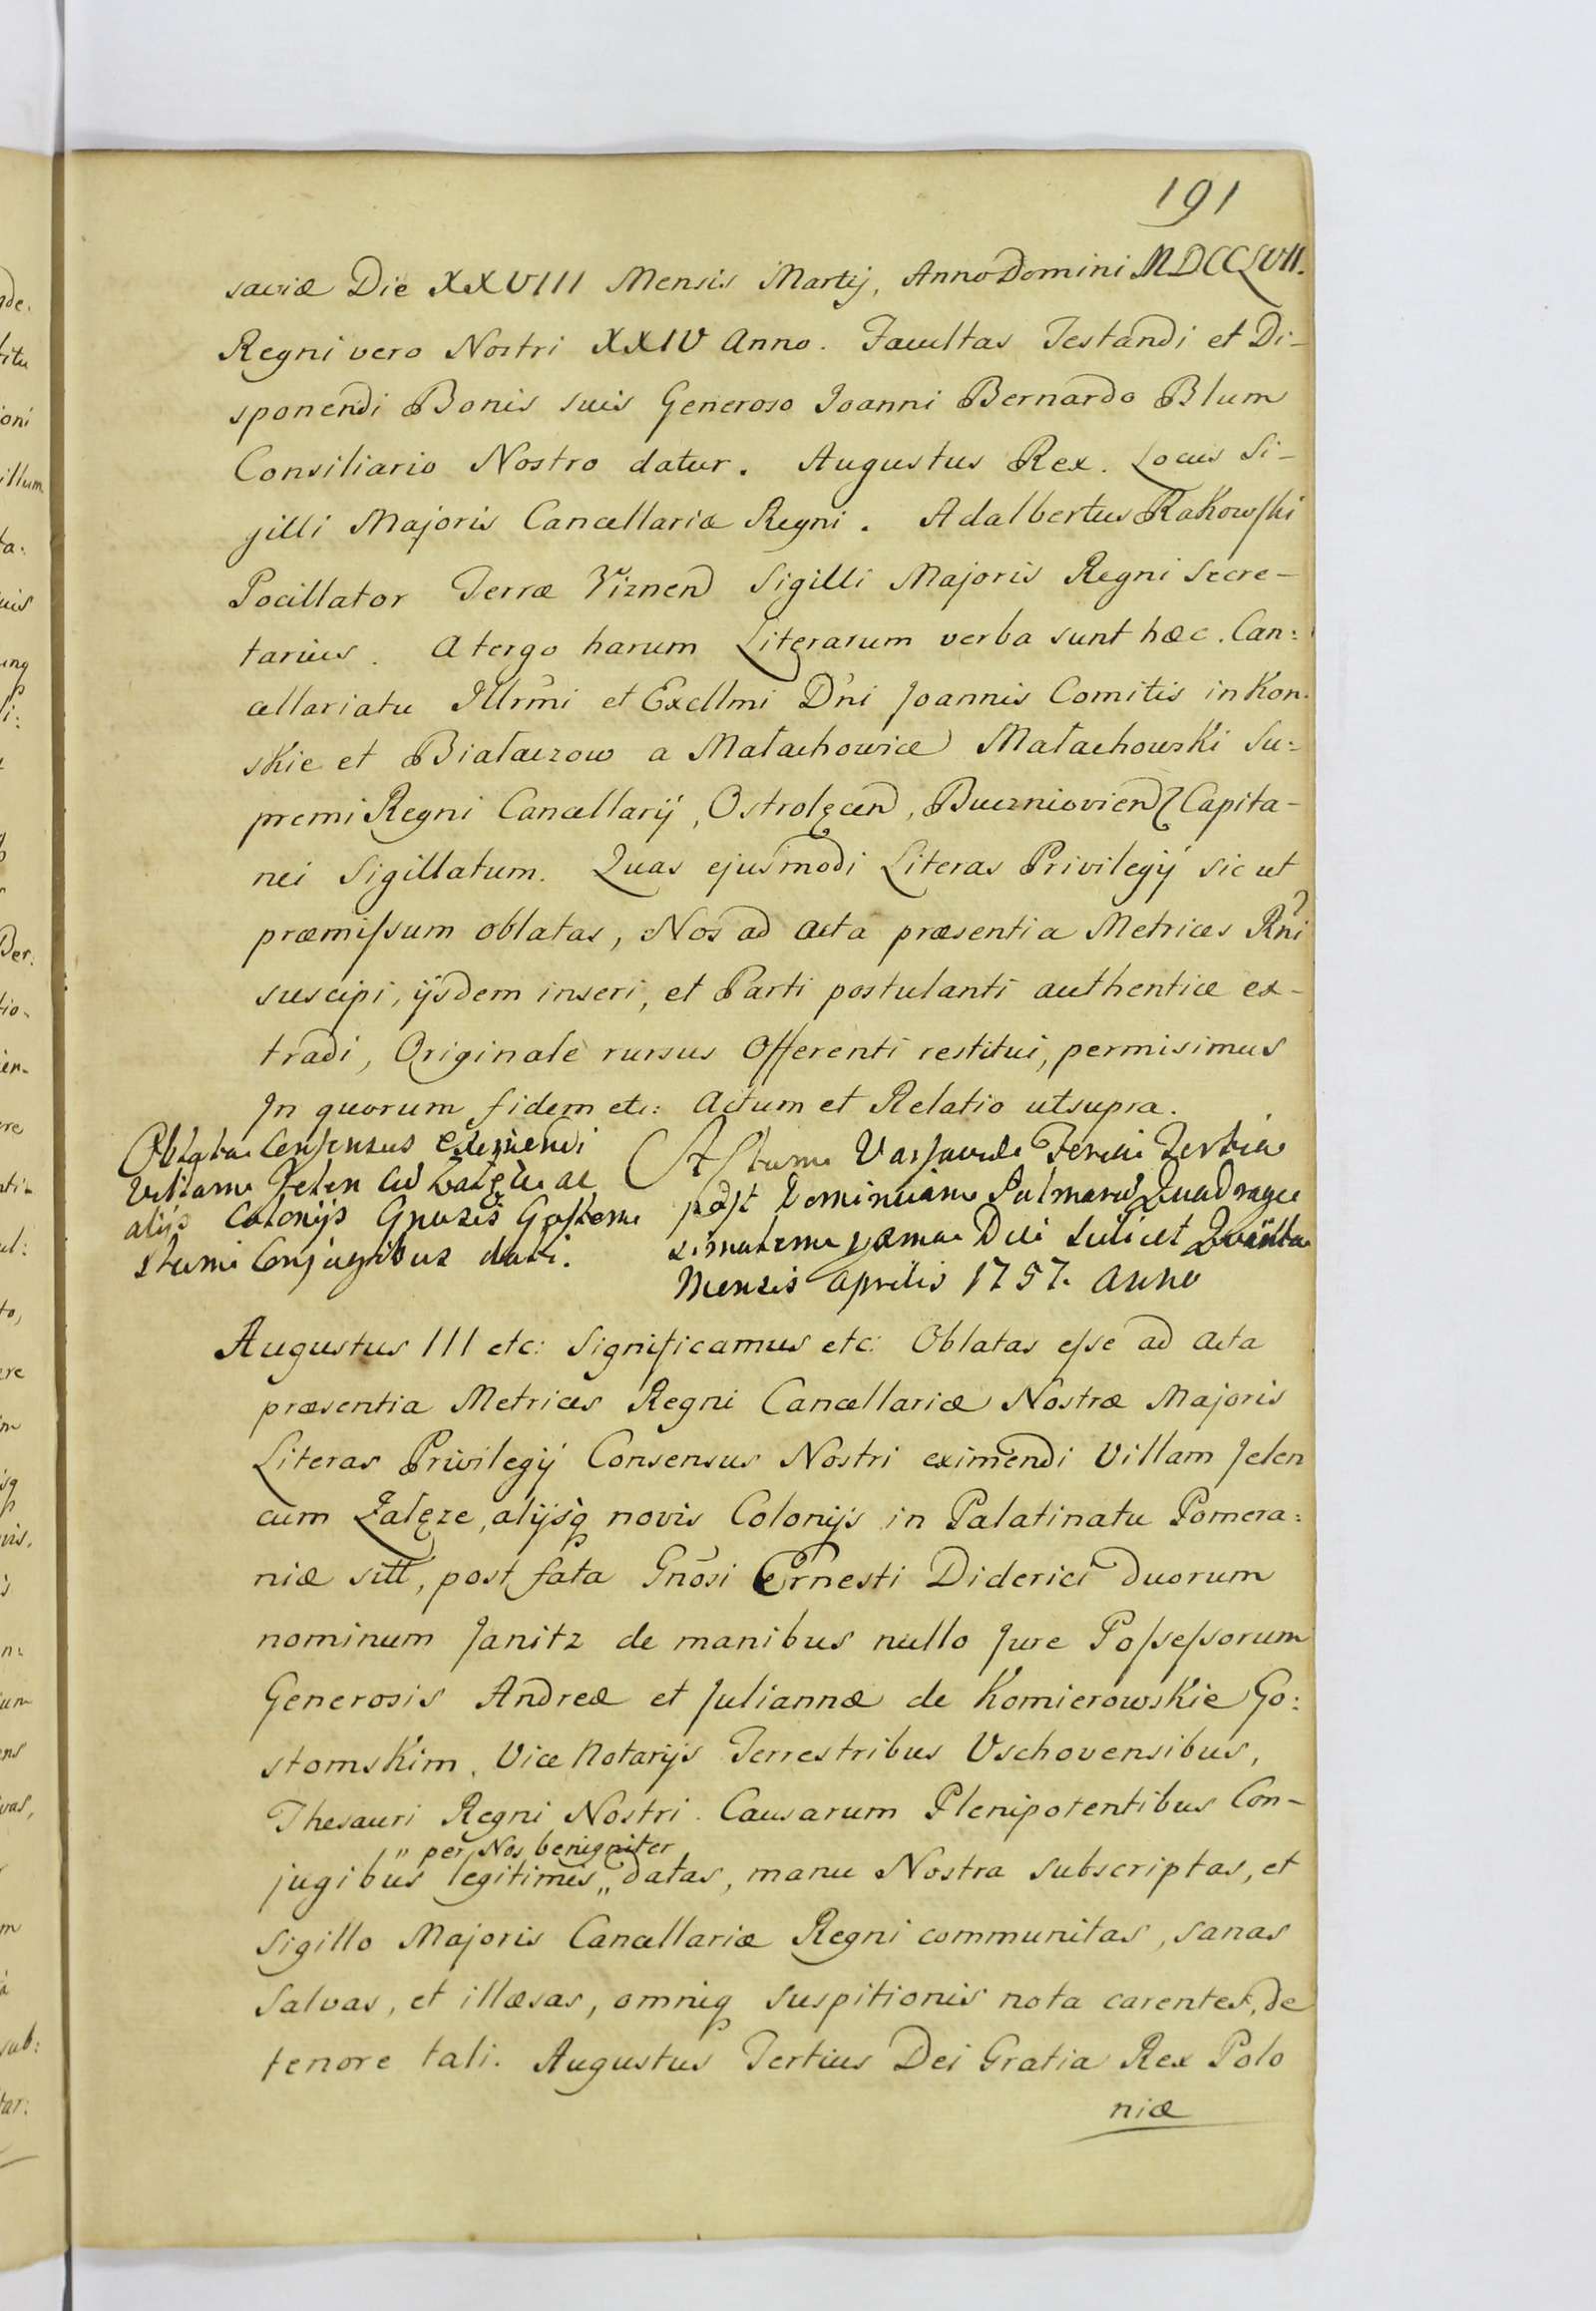 191
saviæ Die XXVIII Mensis Martij, Anno Domini MDCCLVII.
Regni vero Nostri XXIV Anno. Facultas Testandi et Di-
sponendi Bonis suis Generoso Joanni Bernardo Blum
Consiliario Nostro datur. Augustus Rex. Locus Si-
gilli Majoris Cancellariæ Regni. Adalbertus Rakowski
Pocillator Terræ Viznen Sigilli Majoris Regni Secre-
tarius. A tergo harum Literarum verba sunt hæc. Can:
cellariatu Illrmi et Excllmi Dni Joannis Comitis in Kon-
skie et Białaczow a Małachowice Małachowski Su:
premi Regni Cancellarij, Ostrolęcen, Buczniovien Capita-
nei Sigillatum. Quas ejusmodi Literas Privilegij sic ut
præmissum oblatas, Nos ad Acta præsentia Metrices Rni
suscipi, ijsdem inseri, et Parti postulanti authentice ex-
tradi, Originale rursus Offerenti restitui, permisimus
In quorum fidem etc: Actum et Relatio ut supra.
Oblata Consensus Eximendi
Villam Jelen cu Załęze ac
alijs Colonijs Gnosis Gostom
skim Conjugibus dati.
Actum Varsaviæ Feria Tertia
post Dominicam Palmarum Quadrage
simalem proxima Die scilicet Quinta
Mensis Aprilis 1757. Anno
Augustus III etc: Significamus etc: Oblatas esse ad Acta
præsentia Metrices Regni Cancellariæ Nostræ Majoris
Literas Privilegij Consensus Nostri eximendi Villam Jelen
cum Załęze, alijsq novis Colonijs in Palatinatu Pomera:
niæ sitt, post fata Gnosi Ernesti Diderici duorum
nominum Janitz de manibus nullo Jure Possessorum
Generosis Andreæ et Juliannæ de Komierowskie Go:
stomskim, Vice Notarijs Terrestribus Vschovensibus,
Thesauri Regni Nostri Causarum Plenipotentibus Con-
" per Nos benigniter
jugibus legitimis „ datas, manu Nostra subscriptas, et
Sigillo Majoris Cancellariæ Regni communitas, sanas
salvas, et illæsas, omniq suspitionis nota carentes, de
tenore tali. Augustus Tertius Dei Gratia Rex Polo
niæ